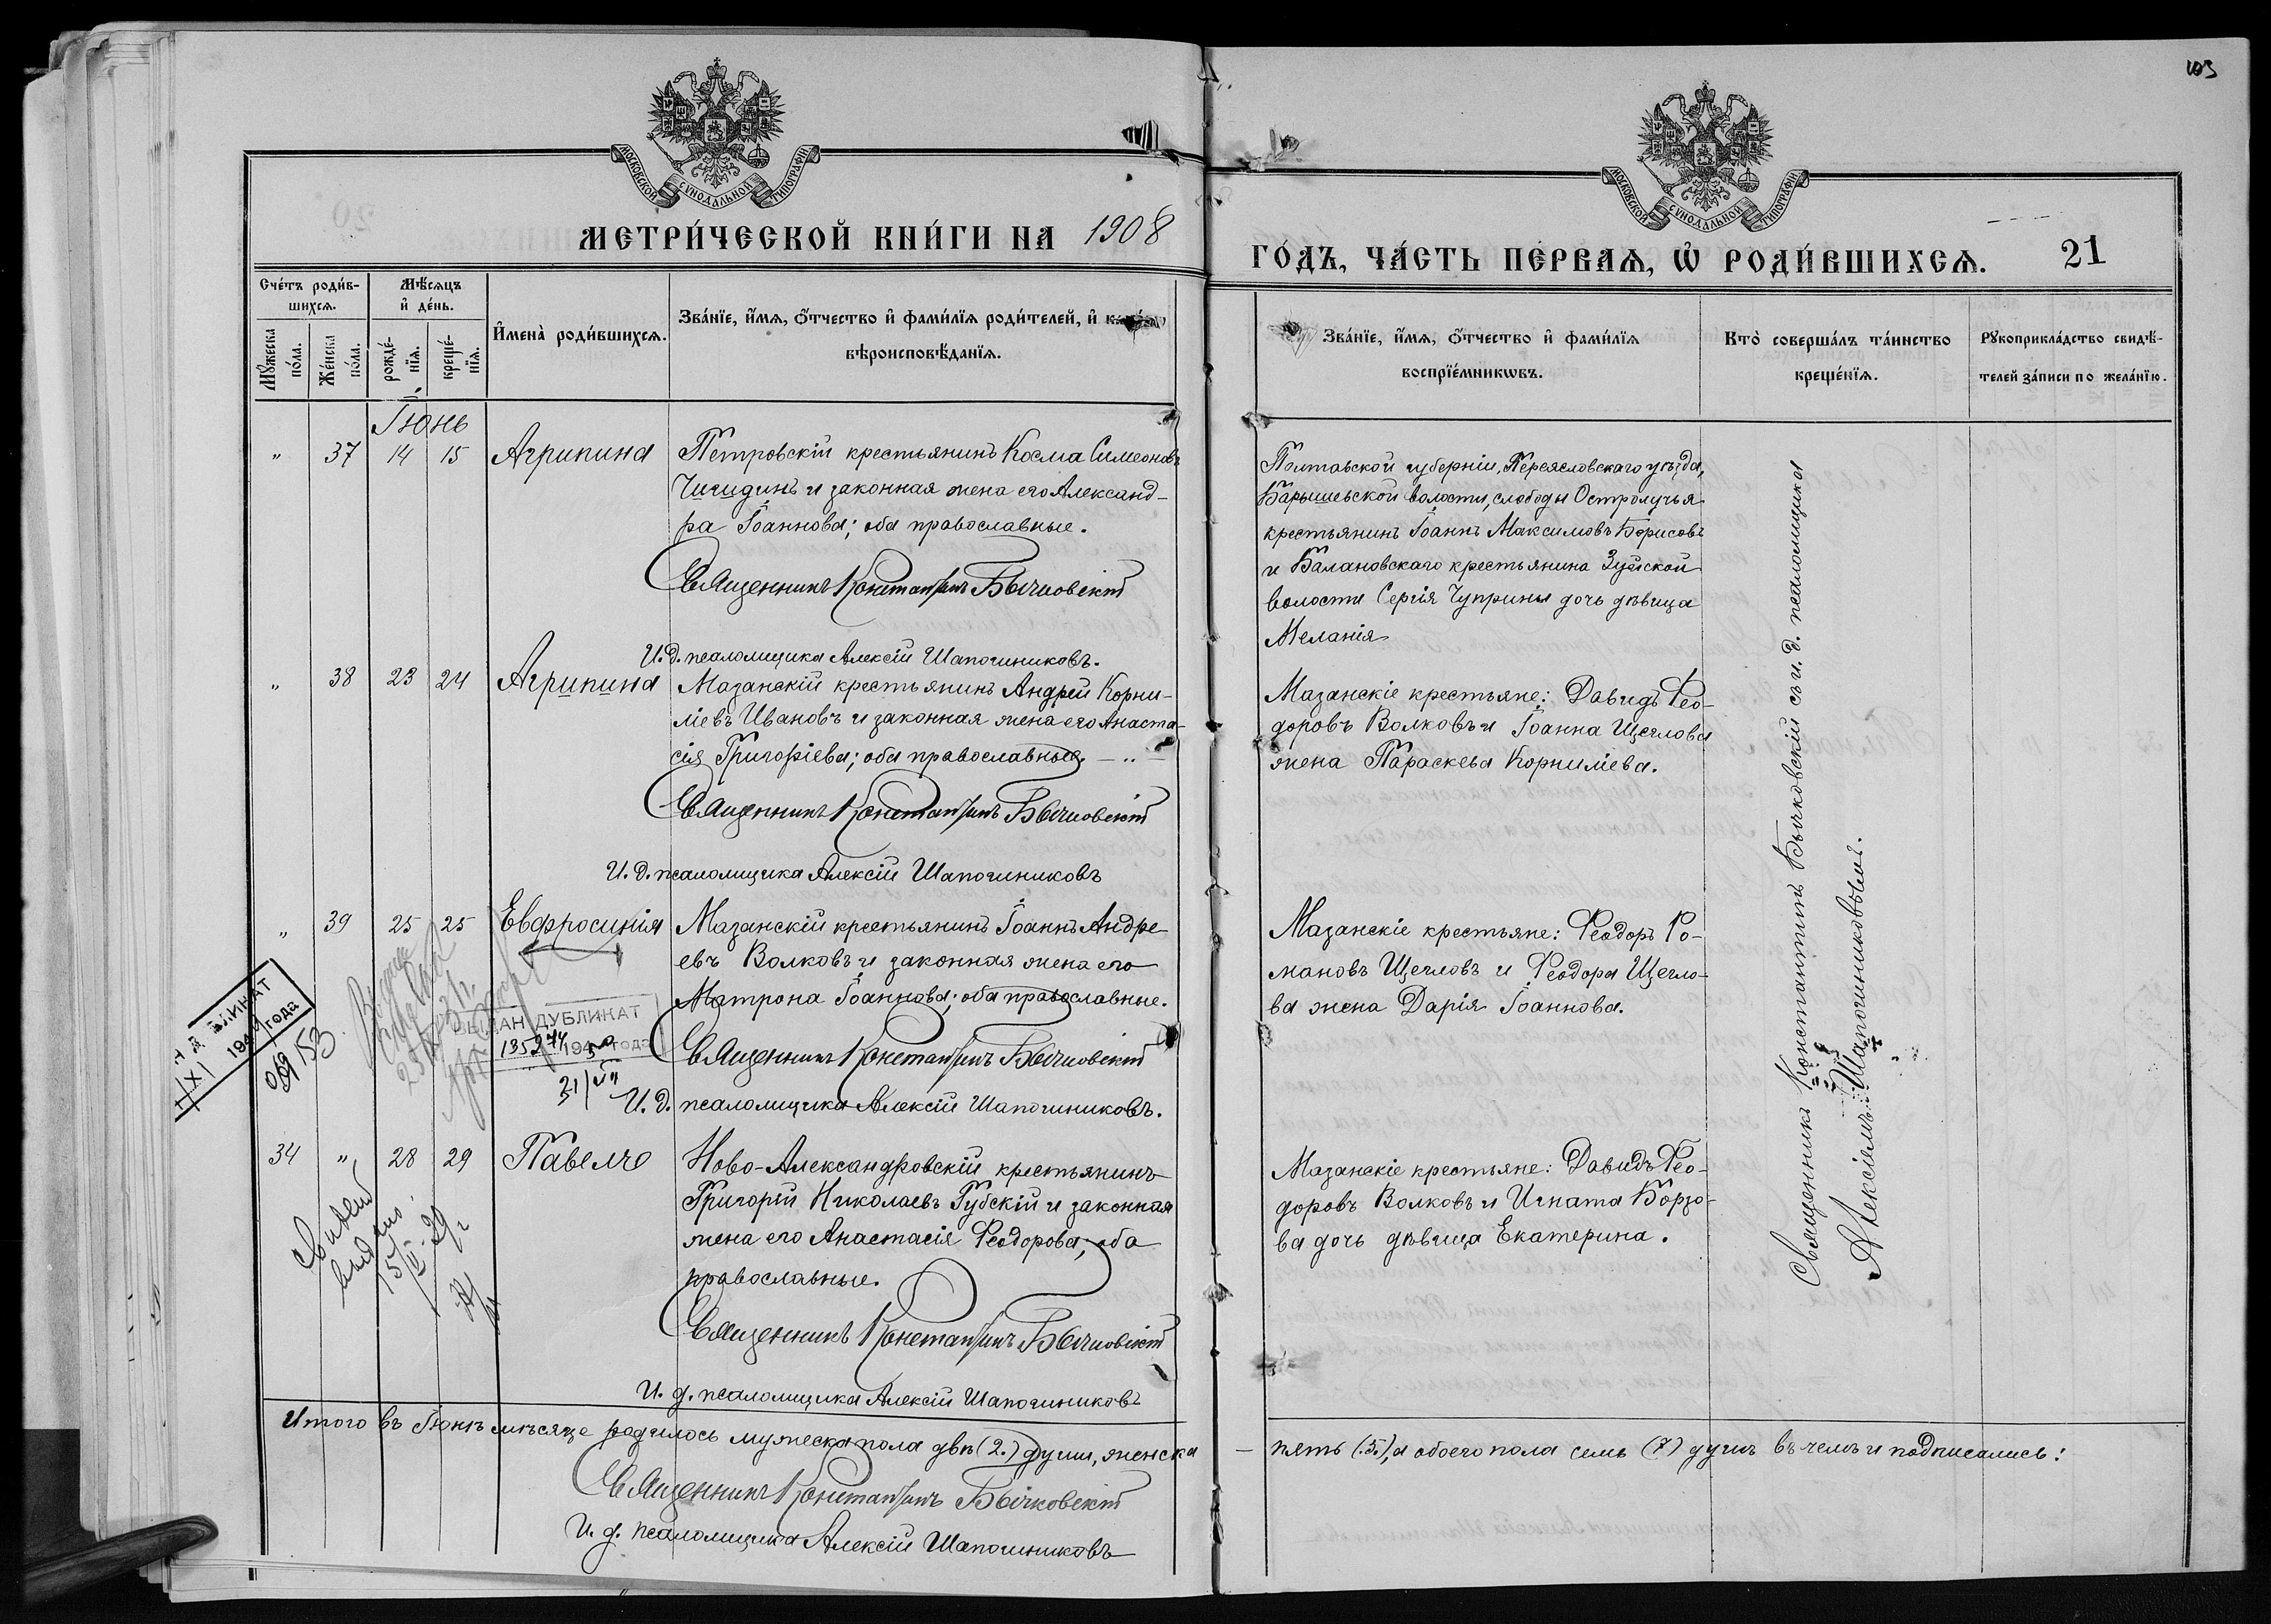 103
МОСКОВСКОЙ СѴНОДАЛЬНОЙ ТИПОГРАФІИ
МОСКОВСКОЙ СѴНОДАЛЬНОЙ ТИПОГРАФІИ
МЕТРИ́ЧЕСКОЙ КНИ́ГИ НА 1908
ГО́ДЪ, ЧА́СТЬ ПЕ́РВАѦ, Ѡ҆ РОДИ́ВШИХСѦ. 21
Сче́тъ роди́в-
шихсѧ.
Мꙋ́жеска по́ла.
Же́нска по́ла.
Мѣ́сяцъ
и҆ де́нь.
рожде́-
нїѧ.
креще́-
нїѧ.
И҆мена̀ роди́вшихсѧ.
Зва́нїе, и҆́мѧ, ѻ҆́тчество и҆ фами́лїѧ роди́телей, и҆
вѣроисповѣ́данїѧ.
Зва́нїе, и҆́мѧ, ѻ҆́тчество и҆ фами́лїѧ
воспрїе́мникѡвъ.
Кто̀ соверша́лъ та́инство
креще́нїѧ.
Рꙋкоприкла́дство свидѣ́-
телей за́писи по жела́нїю.
Іюнь
" 37 14 15 Агрипина
Петровскій крестьянинъ Косма Симеоновъ
Чигидинъ и законная жена его Александ-
ра Іоаннова; оба православные.
Священникъ Константинъ Бычковскій
И. д. псаломщика Алексій Шапошниковъ.
Полтавской губерніи, Переясловскаго уѣзда,
Барышевской волости, слободы Остролучья
крестьянинъ Іоаннъ Максимовъ Борисовъ
и Балановскаго крестьянина Зуйской
волости Сергія Чуприны дочь дѣвица
Меланія
" 38 23 24 Агрипина
Мазанскій крестьянинъ Андрей Корни-
ліевъ Ивановъ и законная жена его Анаста-
сія Григоріева; оба православные. — „ —
Священникъ Константинъ Бычковскій
И. д. псаломщика Алексій Шапошниковъ
Мазанскіе крестьяне: Давидъ Ѳео-
доровъ Волковъ и Іоанна Щеглова
жена Параскева Корниліева.
" 39 25 25 Евфросинія
Мазанскій крестьянинъ Іоаннъ Андре
евъ Волковъ и законная жена его
Матрона Іоаннова; оба православные.
Священникъ Константинъ Бычковскій
И. д. псаломщика Алексій Шапошниковъ.
Мазанскіе крестьяне: Ѳеодоръ Ро-
мановъ Щегловъ и Ѳеодора Щегло-
ва жена Дарія Іоаннова.
ДУБЛИКАТ
194 года
ДУБЛИКАТ
194 года
34 " 28 29 Павелъ
Ново-Александровскій крестьянинъ
Григорій Николаевъ Губскій и законная
жена его Анастасія Ѳеодорова; оба
православные.
Священникъ Константинъ Бычковскій
И. д. псаломщика Алексій Шапошниковъ
Мазанскіе крестьяне: Давидъ Ѳео-
доровъ Волковъ и Игната Борзо-
ва дочь дѣвица Екатерина.
Священникъ Константинъ Бычковскій съ и. д. псаломщика
Алексіемъ Шапошниковымъ.
Итого въ Іюнѣ мѣсяце родилось мужеска пола двѣ (2.) души, женска
— пять (.5.), а обоего пола семь (7) душъ въ чемъ и подписались:
Священникъ Константинъ Бычковскій
И. д. псаломщика Алексій Шапошниковъ